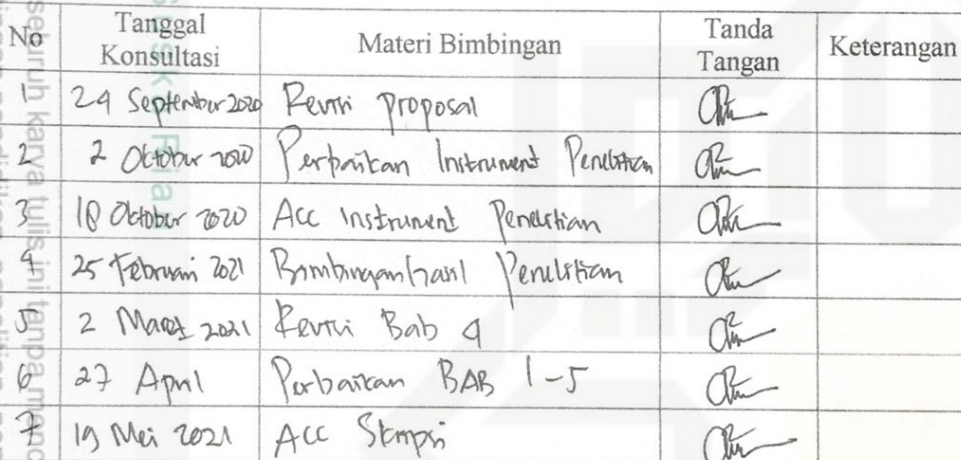 No Tanggal Konsultasi Materi Bimbingan Tanda Tangan Keterangan
1 24 September 2020 Revisi Proposal
2 2 Oktober 2020 Perbaikan Instrument Penelitian
3 18 Oktober 2020 Acc Instrument Penelitian
4 25 Februari 2021 Bimbingan hasil Penelitian
5 2 Maret 2021 Revisi Bab 4
6 27 April Perbaikan BAB 1-5
7 19 Mei 2021 Acc Skripsi
seluruh karya tulis ini tanpa
Riau